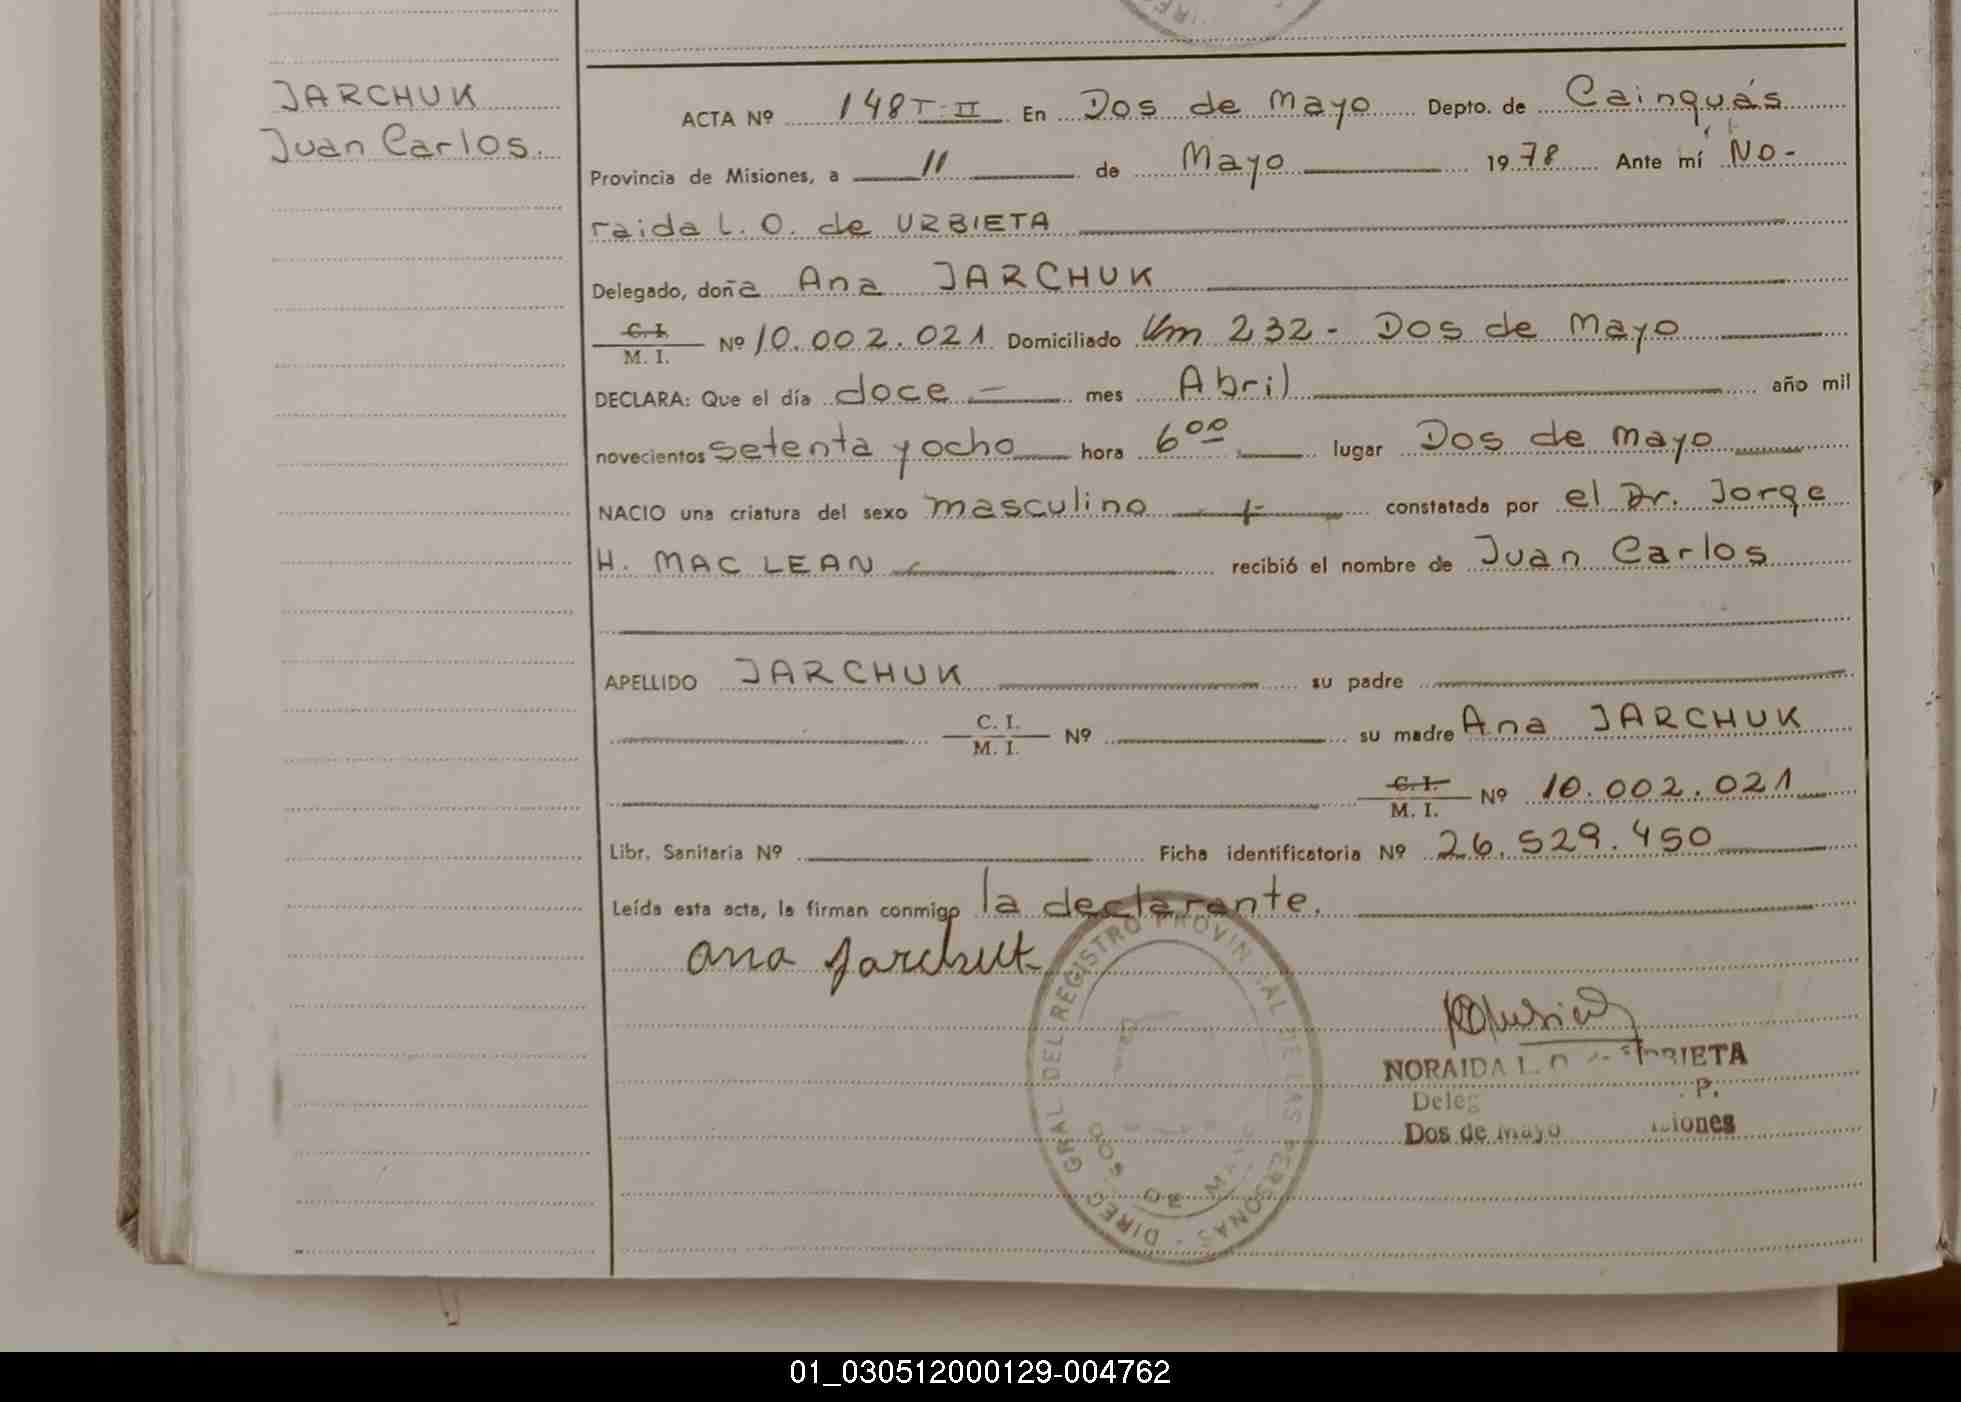 JARCHUK
Juan Carlos.
ACTA Nº 148 T-II En Dos de Mayo Depto. de Cainguás
Provincia de Misiones, a 11 de Mayo 1978 Ante mí No-
raida L. O. de URBIETA
Delegado, doña Ana JARCHUK
C. I.
M. I. Nº 10.002.021 Domiciliado Km 232 - Dos de Mayo
DECLARA: Que el día doce mes Abril año mil
novecientos setenta y ocho hora 6⁰⁰ lugar Dos de Mayo
NACIO una criatura del sexo masculino constatada por el Dr. Jorge
H. MAC LEAN recibió el nombre de Juan Carlos
APELLIDO JARCHUK su padre
C. I.
M. I. Nº su madre Ana JARCHUK
C. I.
M. I. Nº 10.002.021
Libr. Sanitaria Nº Ficha identificatoria Nº 26.529.450
Leída esta acta, la firman conmigo la declarante.
Ana Jarchuk
DIREC. GRAL DEL REGISTRO PROVINCIAL DE LAS PERSONAS
DOS DE MAYO
NORAIDA L. O. URBIETA
P.
Dos de Mayo
01_030512000129-004762